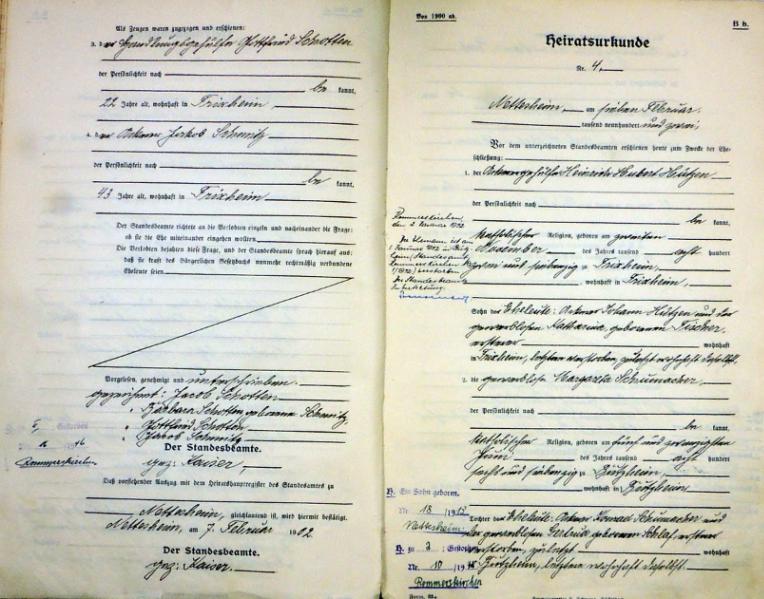 Als Zeugen waren zugezogen und erschienen:
3. der Handlungsgehülfe Gottfried Schotten
der Persönlichkeit nach
be kannt,
22 Jahre alt, wohnhaft in Frixheim
4. der Ackerer Jakob Schmitz
der Persönlichkeit nach
be kannt,
43 Jahre alt, wohnhaft in Frixheim
Der Standesbeamte richtete an die Verlobten einzeln und nacheinander die Frage:
ob sie die Ehe miteinander eingehen wollen.
Die Verlobten bejahten diese Frage, und der Standesbeamte sprach hierauf aus:
daß sie kraft des Bürgerlichen Gesetzbuchs nunmehr rechtmäßig verbundene
Eheleute seien.
Vorgelesen, genehmigt und unterschrieben.
gezeichnet: Jacob Schotten
" Barbara Schotten geborene Schmitz
" Gottfried Schotten
" Jacob Schmitz
Der Standesbeamte.
gez: Kaiser,
Daß vorstehender Auszug mit dem Heiratshauptregister des Standesamts zu
Nettesheim, gleichlautend ist, wird hiermit bestätigt.
Nettesheim, am 7. Februar 1902
Der Standesbeamte.
gez: Kaiser.
Gestorben
Rommerskirchen
Von 1900 ab.
B b.
Heiratsurkunde
Nr. 4.
Nettesheim, am sieben Februar
tausend neunhundert und zwei,
Vor dem unterzeichneten Standesbeamten erschienen heute zum Zwecke der Ehe-
schließung:
1. der Ackergehülfe Heinrich Hubert Hützen
der Persönlichkeit nach
be kannt,
katholischer Religion, geboren am zweiten
November des Jahres tausend acht hundert
zwei und siebenzig zu Frixheim,
, wohnhaft in Frixheim,
Sohn der Eheleute: Ackerer Johann Hützen und der
gewerblosen Katharina, geborenen Fischer,
ersterer wohnhaft
in Frixheim, letztere verstorben, zuletzt wohnhaft daselbst.
2. die gewerblose Margareta Schumacher,
der Persönlichkeit nach
be kannt,
katholischer Religion, geboren am fünf und zwanzigsten
des Jahres tausend acht hundert
sechs und siebenzig zu
, wohnhaft in
Tochter der Eheleute: Ackerer Konrad Schumacher und
der gewerblosen Gertrud geborenen Schlaf, ersterer
verstorben, zuletzt wohnhaft
letztere wohnhaft daselbst.
Rommerskirchen
Der Ehemann ist am
Der Standesbeamte
Ein Sohn geboren
Nr. 18 / 1912
Nettesheim
zu 2 : Gestorben
Nr. 10
Rommerskirchen